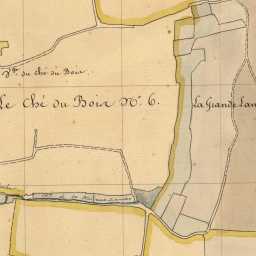 du Ché du Boix
Le Ché du Boix N.º 6.
La Grande Lan